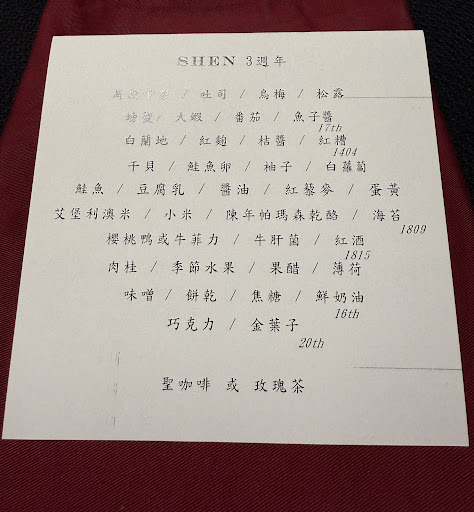 SHEN 3週年
/ 吐司 / 烏梅 / 松露
螃蟹 / 大蝦 / 番茄 / 魚子醬
17th
白蘭地 / 紅麴 / 桔醬 / 紅糟
1404
干貝 / 鮭魚卵 / 柚子 / 白蘿蔔
鮭魚 / 豆腐乳 / 醬油 / 紅藜麥 / 蛋黃
艾堡利澳米 / 小米 / 陳年帕瑪森乾酪 / 海苔
1809
櫻桃鴨或牛菲力 / 牛肝菌 / 紅酒
1815
肉桂 / 季節水果 / 果醋 / 薄荷
味噌 / 餅乾 / 焦糖 / 鮮奶油
16th
巧克力 / 金葉子
20th
聖咖啡 或 玫瑰茶